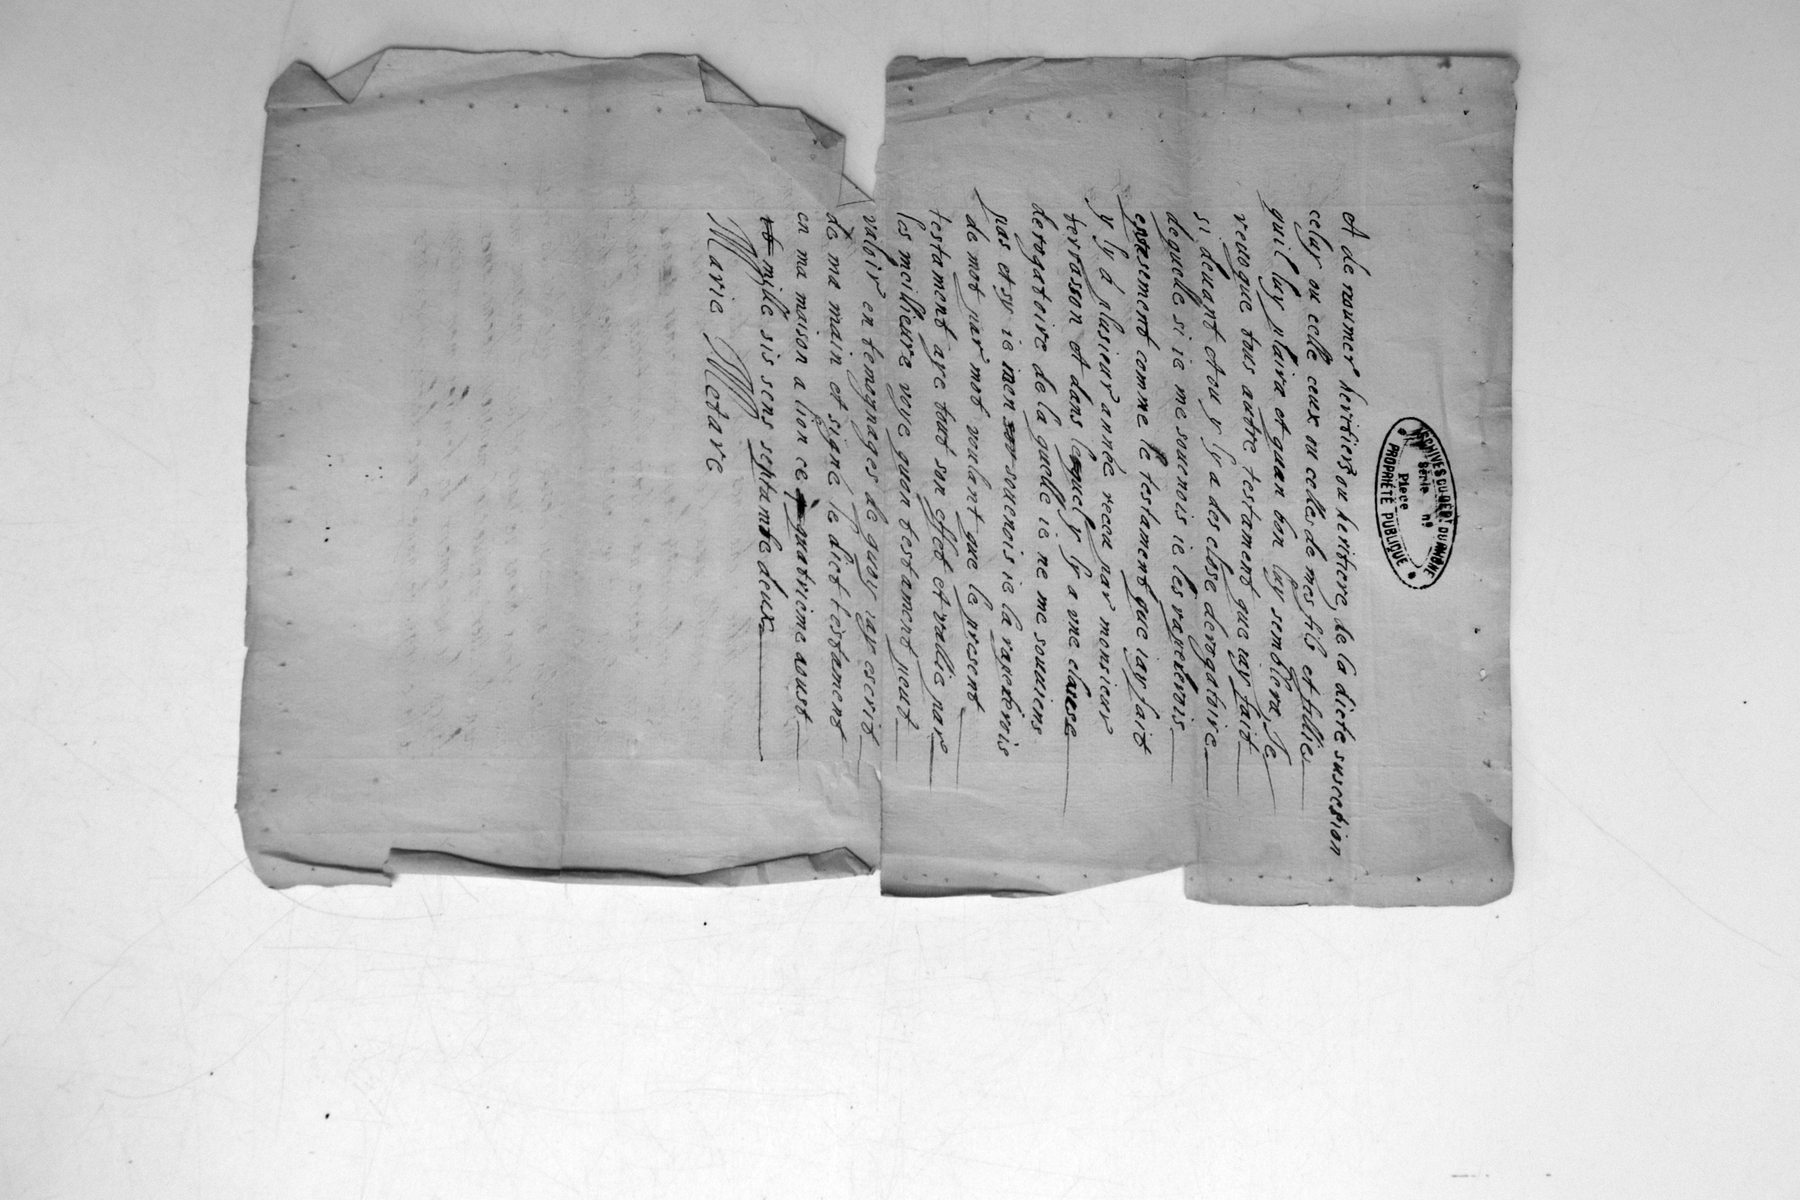 ARCHIVES DU DEPT DU RHONE
Série n°
Piece
PROPRIÉTÉ PUBLIQUE
A de noumer heritiers ou heritiere de la dicte suscesion
celuy ou celle ceux ou celles de mes fils et fillies
quil luy plaira et quan bon luy semblera, Je
revoque tous autre testament que iay fait
si devant et ou y ly a des close derogatoire
dequelle si ie me souenois ie les
espresement comme le testament que iay fait
y ly a plusieur année receu par monsieur
terrasson et dans lequel y ly a une clause
derogatoire de la quelle ie ne me souviens
pas et sy ie men souenois ie la
de mot par mot voulant que le present
testament aye tout son effet et vallie par
les meilieure voye quon testament peut
valoir en temognages de quoy iay escrit
de ma main et signé le dict testament
en ma maison a lion ce quatrieme aoust
mille sis sens septante deux
Marie